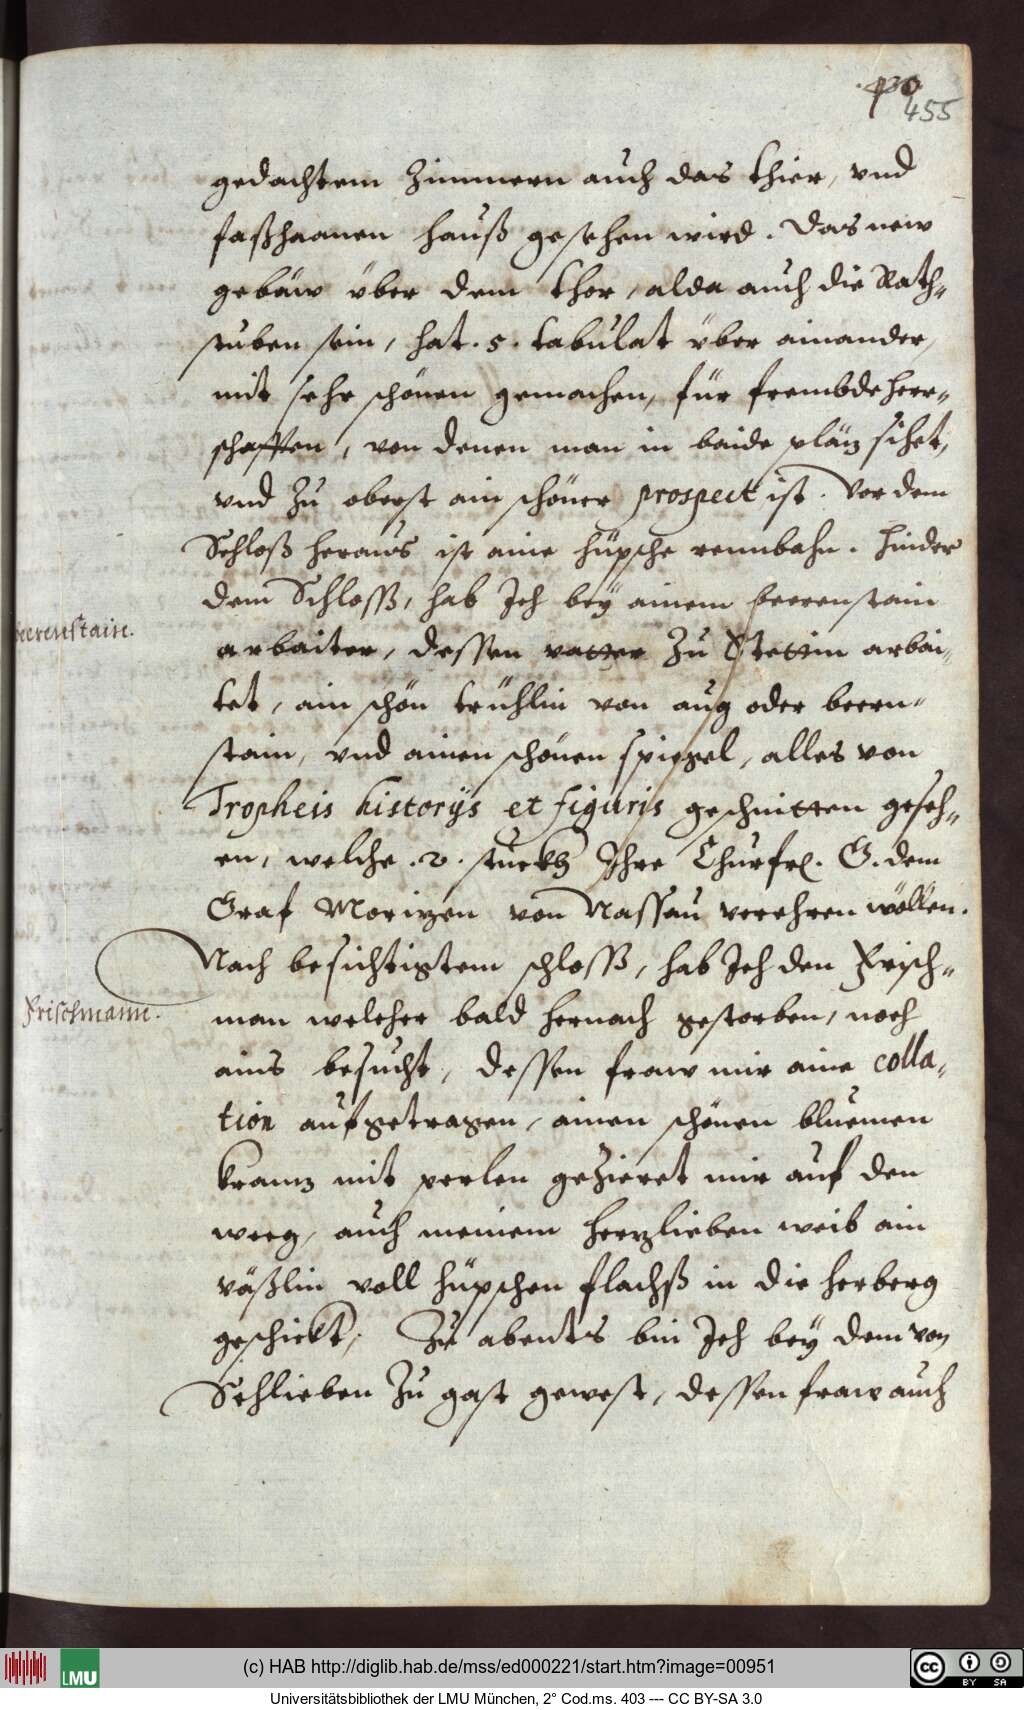 455
gedachtem Zimmern auch das thier, vnd
faßhaanen hauß gesehen wird. Das new
gebäw über dem thor, alda auch die Rath-
stuben sein, hat .5. tabulat über ainander,
mit sehr schönen gemachen, für frembde herr-
schafften, von denen man in baide pläz sihet,
vnd Zu oberst ain schöner prospect ist. Vor dem
Schloß heraus ist aine hüpsche rennbahn. Hinder
dem Schloss, hab Ich bey ainem beerenstain
beerenstain.
arbaiter, dessen vatter Zu Stettin arbai-
tet, ain schön trühlin von aug oder beern-
stain, vnd ainen schönen spiegel, alles von
Tropheis historijs et figuris geschnitten geseh-
en, welche .2. stuckh Ihre Churfrl. G. dem
Graf Morizen von Nassau verehren wöllen.
Nach besichtigtem schloss, hab Ich den Frisch-
Frischmann.
man welcher bald hernach gestorben, noch
ains besucht, dessen fraw mir aine colla-
tion aufgetragen, ainen schönen bluemen
kranz mit perlen gezieret mir auf den
weeg, auch meinem herzlieben weib ain
väßlin voll hüpschen flachß in die herberg
geschickt, Zu abents bin Ich bey dem von
Schlieben Zu gast gewest, dessen fraw auch
LMU
(c) HAB http://diglib.hab.de/mss/ed000221/start.htm?image=00951
cc BY SA
Universitätsbibliothek der LMU München, 2° Cod.ms. 403 --- CC BY-SA 3.0